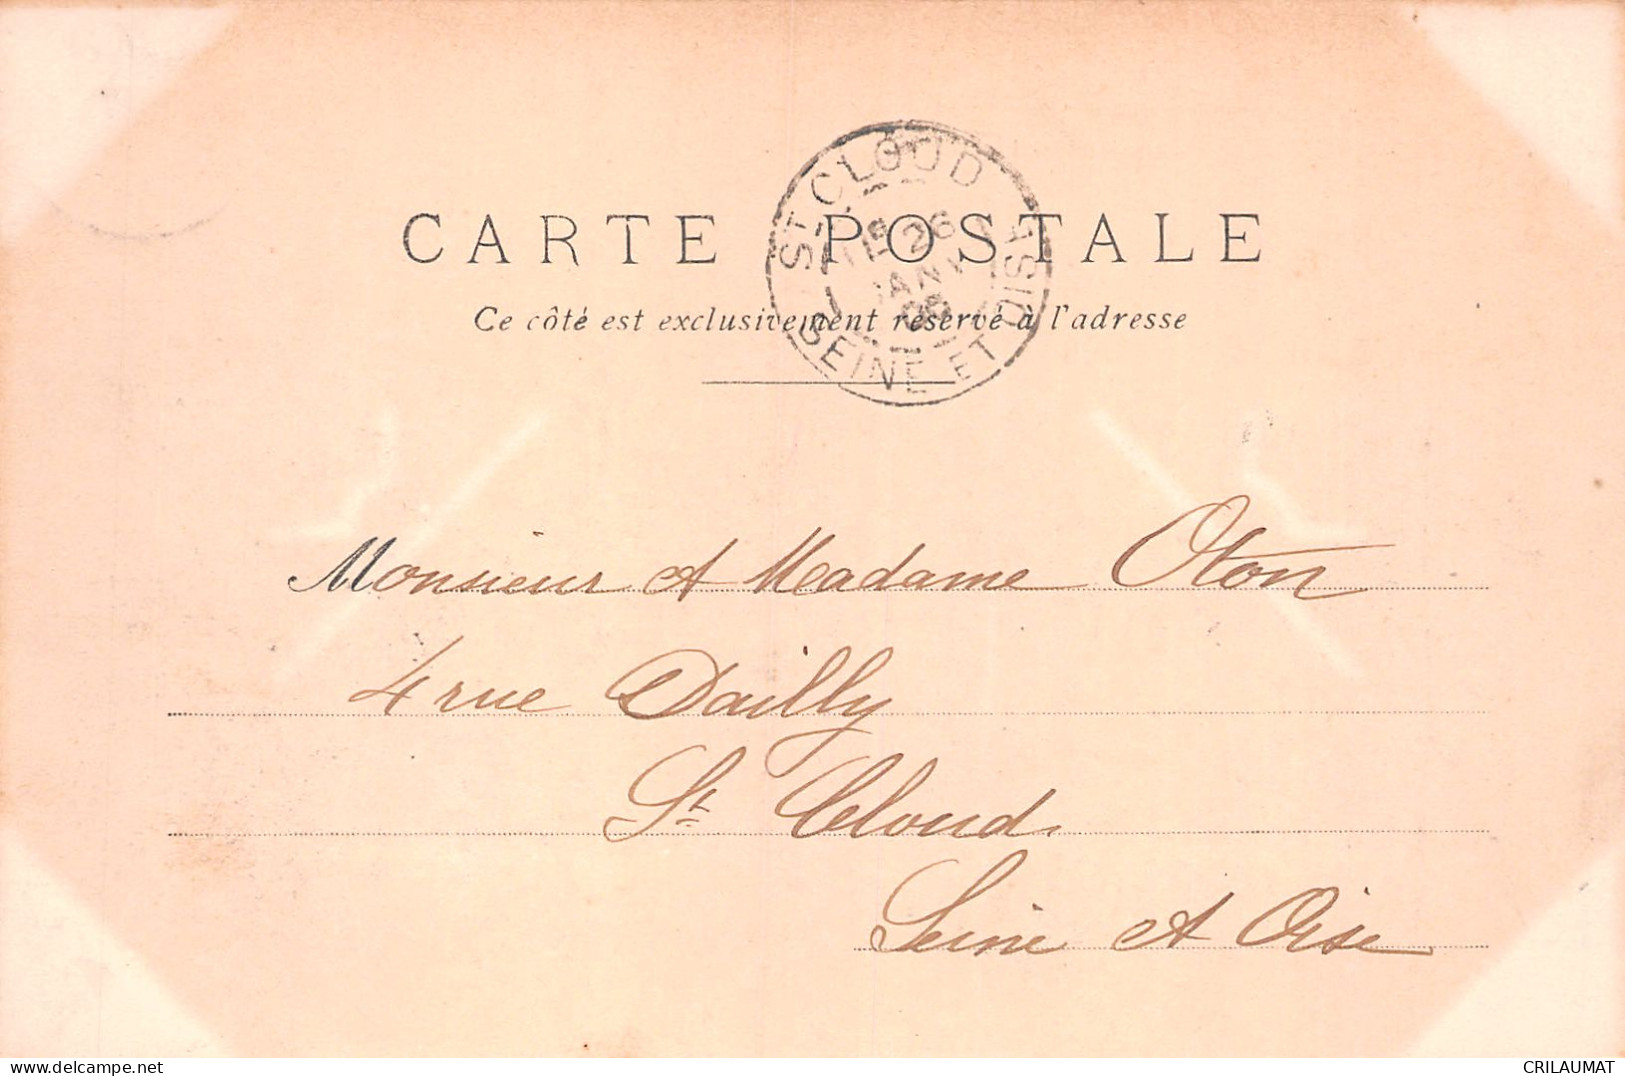 CARTE POSTALE
Ce côté est exclusivement réservé à l'adresse
ST CLOUD
26
JANV
SEINE ET OISE
Monsieur et Madame Oton
4 rue Dailly
St Cloud
Seine et Oise
CRILAUMAT